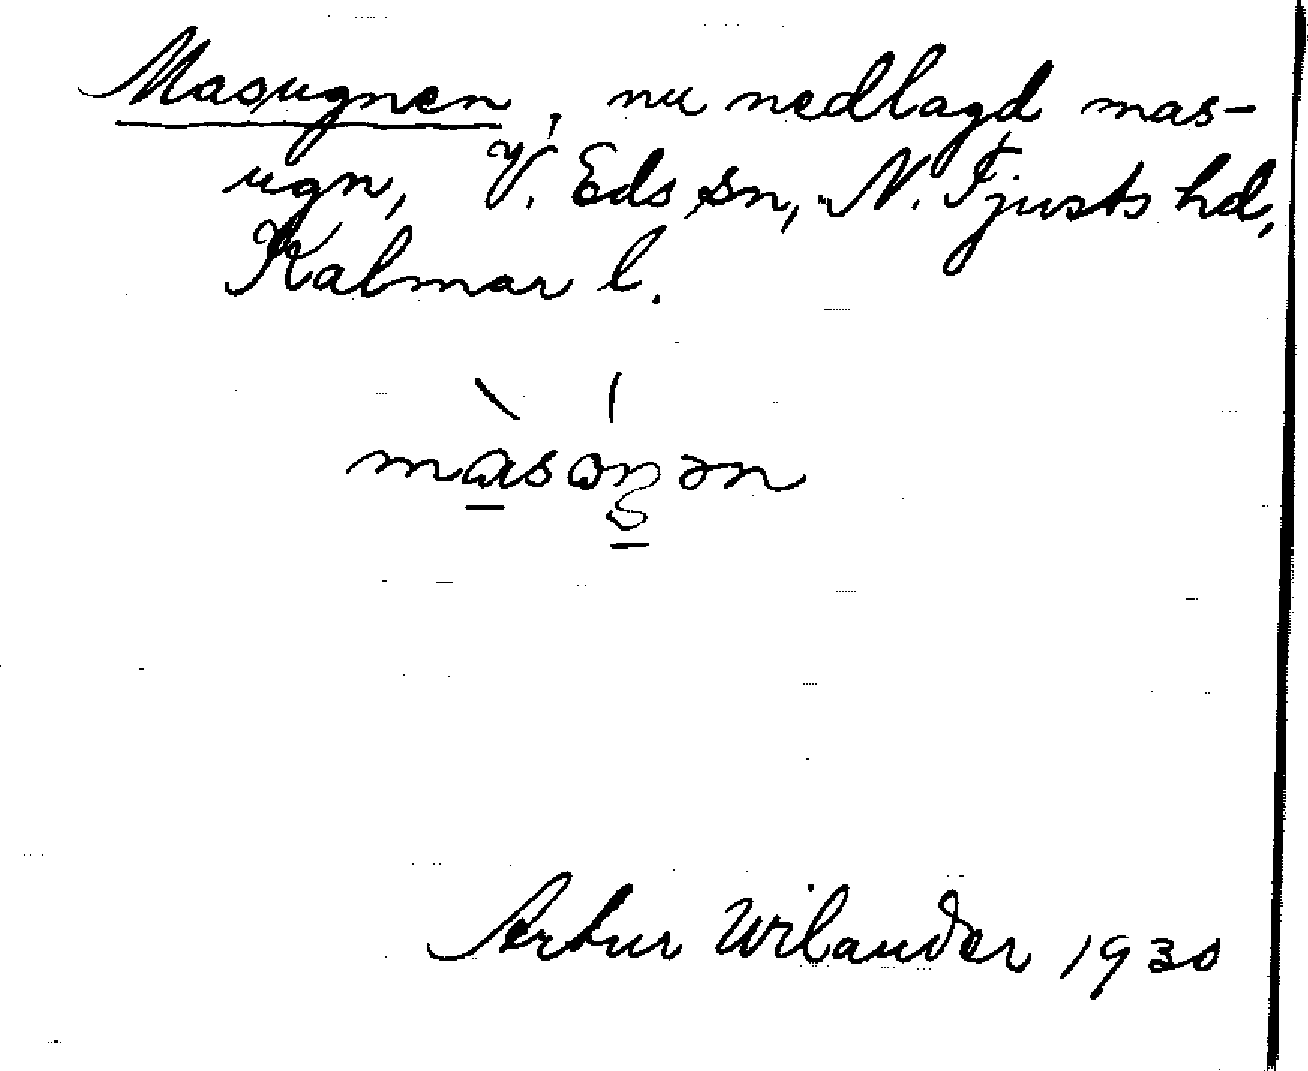 Masugnen, nu nedlagd mas-
ugn, V. Eds sn, N. Tjusts hd,
Kalmar l.
Artur Wilander 1930